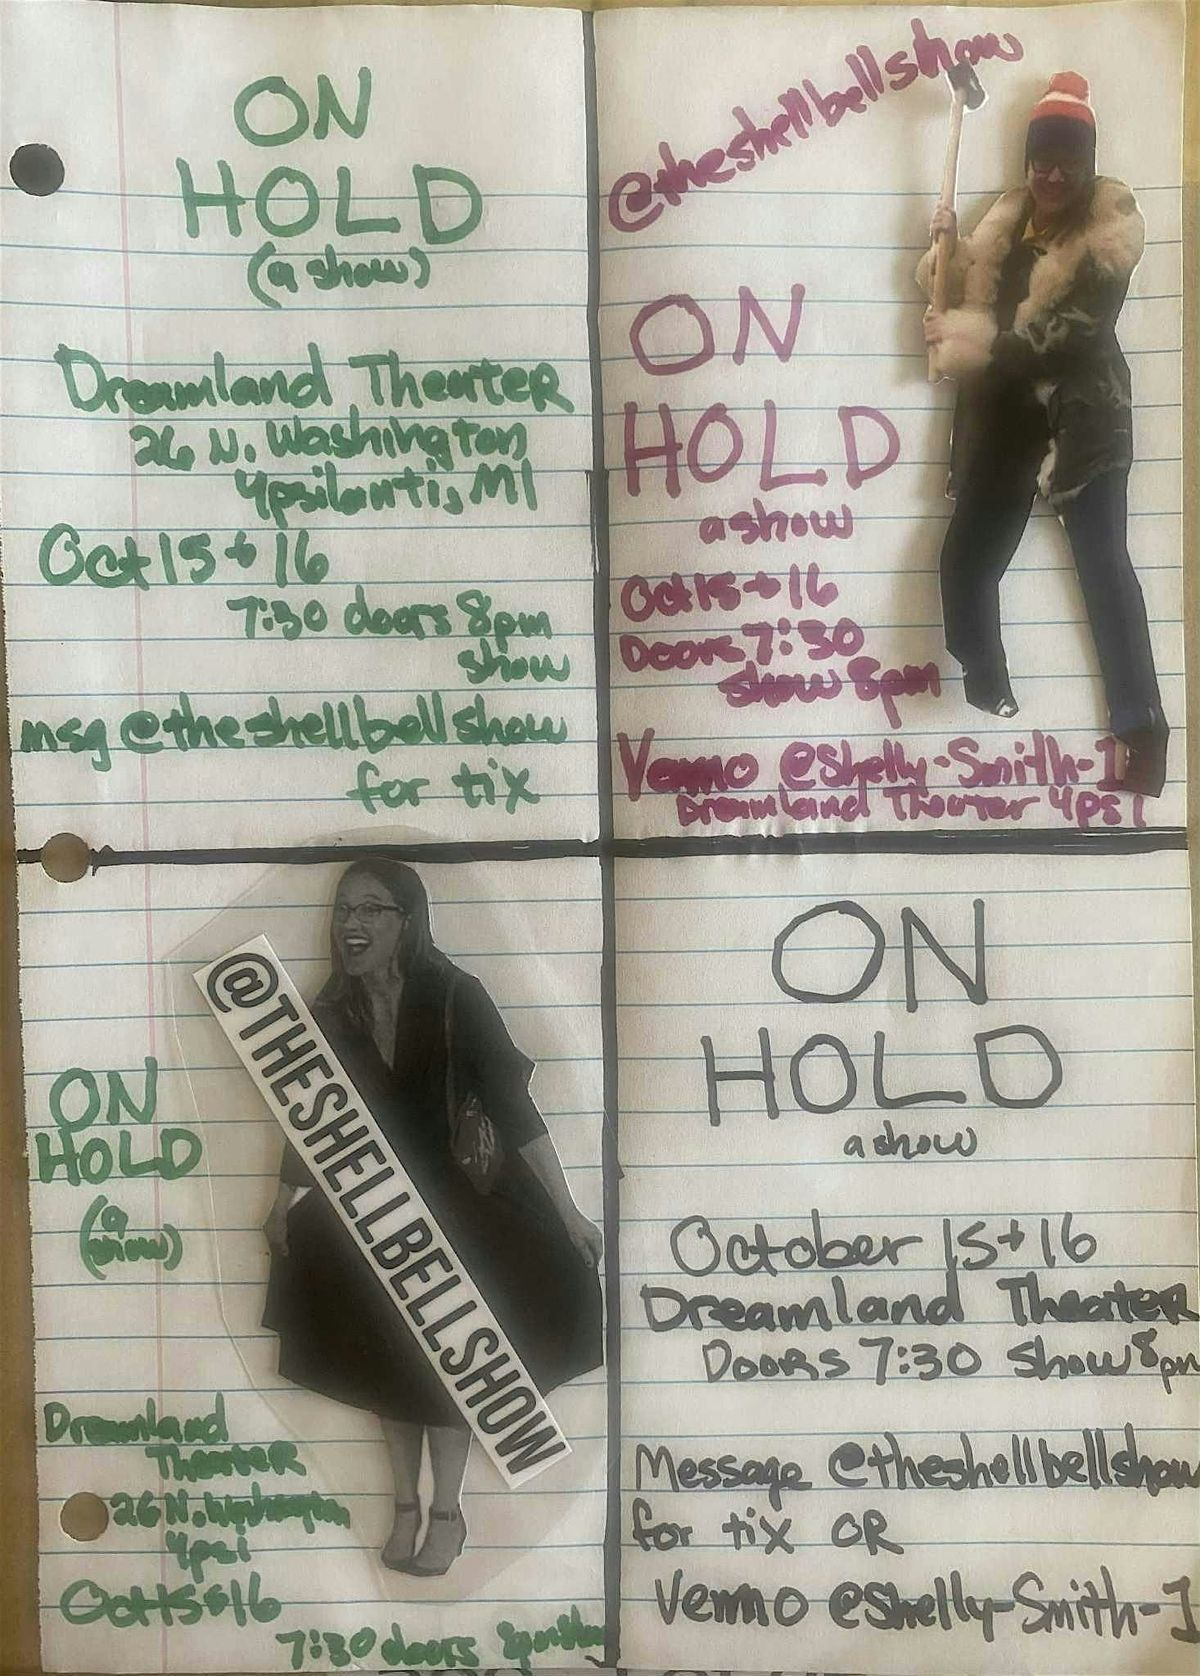 ON
HOLD
(a show)
Dreamland Theater
26 N. Washington
Ypsilanti, MI
Oct 15 + 16
7:30 doors 8pm
show
msg @theshellbellshow
for tix
@theshellbellshow
ON
HOLD
a show
Oct 15 + 16
Doors 7:30
show 8pm
Venmo @Shelly-Smith-1
Dreamland Theater Ypsi
ON
HOLD
(a
show)
@THESHELLBELLSHOW
Dreamland
Theater
26 N. Washington
Ypsi
Oct 15 + 16
7:30 doors 8pm
ON
HOLD
a show
October 15 + 16
Dreamland Theater
Doors 7:30 show 8pm
Message @theshellbellshow
for tix OR
Venmo @Shelly-Smith-1